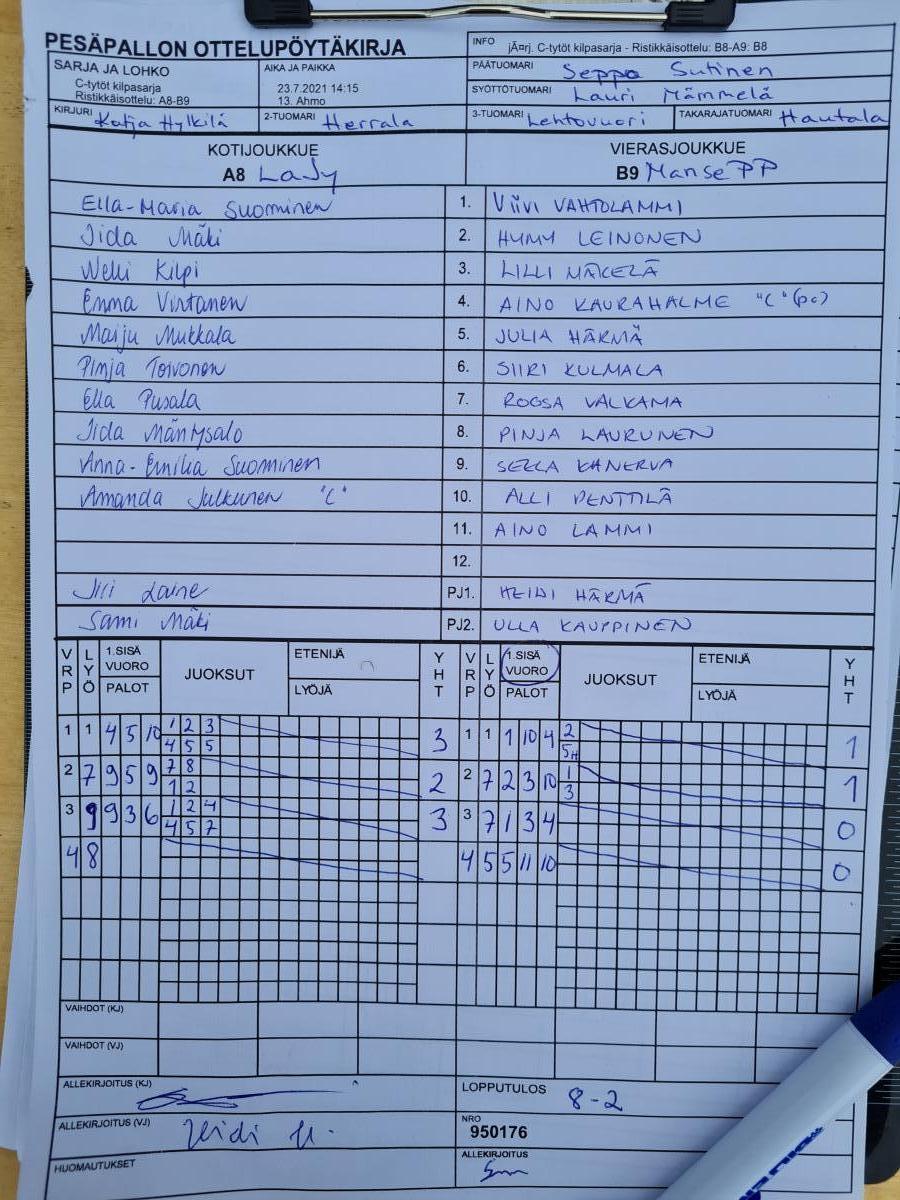 PESÄPALLON OTTELUPÖYTÄKIRJA
INFO jÃ¤rj. C-tytöt kilpasarja - Ristikkäisottelu: B8-A9: B8
SARJA JA LOHKO
C-tytöt kilpasarja
Ristikkäisottelu: A8-B9
AIKA JA PAIKKA
23.7.2021 14:15
13. Ahmo
PÄÄTUOMARI Seppo Sutinen
SYÖTTÖTUOMARI Lauri Mämmelä
KIRJURI Katja Hylkilä 2-TUOMARI Herrala 3-TUOMARI Lehtovuori TAKARAJATUOMARI Hautala
KOTIJOUKKUE VIERASJOUKKUE
A8 LaJy B9 Manse PP
Ella-Maria Suominen 1. VIIVI VAHTOLAMMI
Iida Mäki 2. HYMY LEINONEN
Nelli Kilpi 3. LILLI MÄKELÄ
Emma Virtanen 4. AINO KAURAHALME "C" (pc)
Maiju Mukkala 5. JULIA HÄRMÄ
Pinja Toivonen 6. SIIRI KULMALA
Ella Pusala 7. ROOSA VALKAMA
Iida Mäntysalo 8. PINJA LAURUNEN
Anna-Emilia Suominen 9. SELLA KANERVA
Amanda Julkunen "C" 10. ALLI PENTTILÄ
11. AINO LAMMI
12.
Jiri Laine PJ1. HEIDI HÄRMÄ
Sami Mäki PJ2. ULLA KAUPPINEN
VRP LYÖ 1.SISÄ VUORO PALOT JUOKSUT ETENIJÄ LYÖJÄ YHT VRP LYÖ 1.SISÄ VUORO PALOT JUOKSUT ETENIJÄ LYÖJÄ YHT
1 1 4 5 10 1 2 3 3 1 1 1 10 4 2 1
4 5 5 5H
2 7 9 5 9 7 8 2 2 7 2 3 10 1 1
1 2 3
3 9 9 3 6 1 2 4 3 3 7 1 3 4 0
4 5 7
4 8 4 5 5 11 10 0
VAIHDOT (KJ)
VAIHDOT (VJ)
ALLEKIRJOITUS (KJ) LOPPUTULOS 8-2
ALLEKIRJOITUS (VJ) Heidi H. NRO
950176
HUOMAUTUKSET ALLEKIRJOITUS